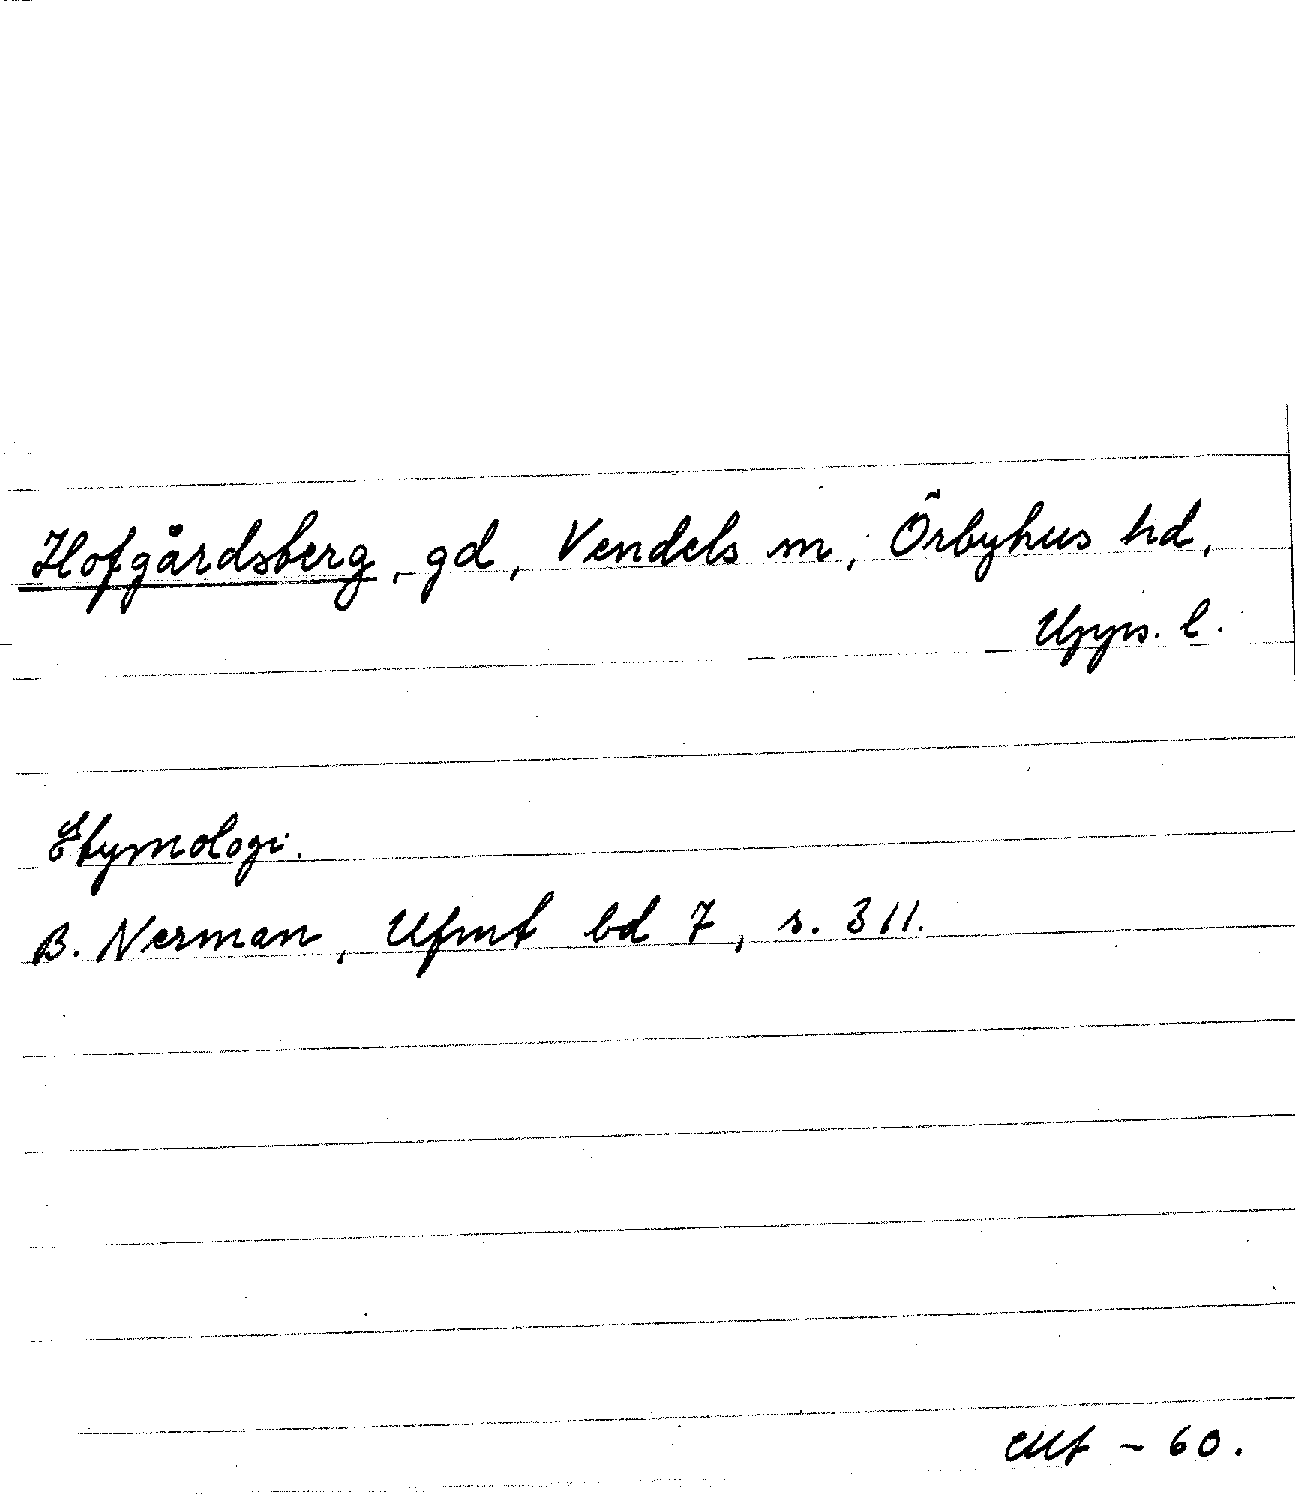 Hofgårdsberg, gd, Vendels sn, Örbyhus hd,
Upps. l.
Etymologi.
B. Nerman, Ufmt bd 7, s. 311.
- 60.